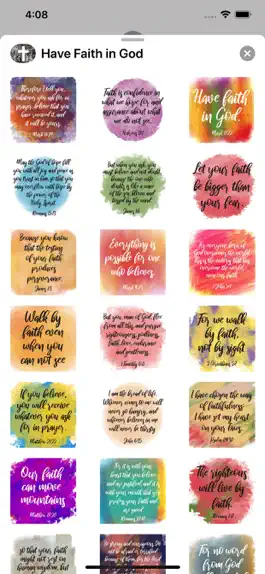 4:08
Have Faith in God
Therefore I tell you,
whatever you ask for in
prayer, believe that you
have received it, and
it will be yours.
Mark 11:24
Faith is confidence in
what we hope for and
assurance about what
we do not see.
Hebrews 11:1
Have faith
in God.
Mark 11:22
May the God of hope fill
you with all joy and peace as
you trust in him, so that you
may overflow with hope by
the power of the
Holy Spirit.
Romans 15:13
But when you ask, you
must believe and not doubt,
because the one who
doubts is like a wave
of the sea, blown and
tossed by the wind.
James 1:6
Let your faith
be bigger than
your fear.
Because you know
that the testing
of your faith
produces
perseverance.
James 1:3
Everything is
possible for one
who believes.
Mark 9:23
for everyone born of
God overcomes the world.
This is the victory that has
overcome the world,
even our faith.
1 John 5:4
Walk by
faith even
when you
can not see
But you, man of God, flee
from all this, and pursue
righteousness, godliness,
faith, love, endurance
and gentleness.
1 Timothy 6:11
For we walk
by faith,
not by sight
2 Corinthians 5:7
If you believe,
you will receive
whatever you ask
for in prayer.
Matthew 21:22
I am the bread of life.
Whoever comes to me will
never go hungry, and
whoever believes in me
will never be thirsty.
John 6:35
I have chosen the way
of faithfulness;
I have set my heart
on your laws.
Psalm 119:30
Our faith
can move
mountains
Matthew 17:20
For it is with your
heart that you believe
and are justified, and it is
with your mouth that you
profess your faith
and are saved.
Romans 10:10
The righteous
will live by
faith.
Romans 1:17
so that your faith
might not rest on
human wisdom, but
Be strong and courageous. Do
not be afraid or terrified
because of them, for the
For no word
from God